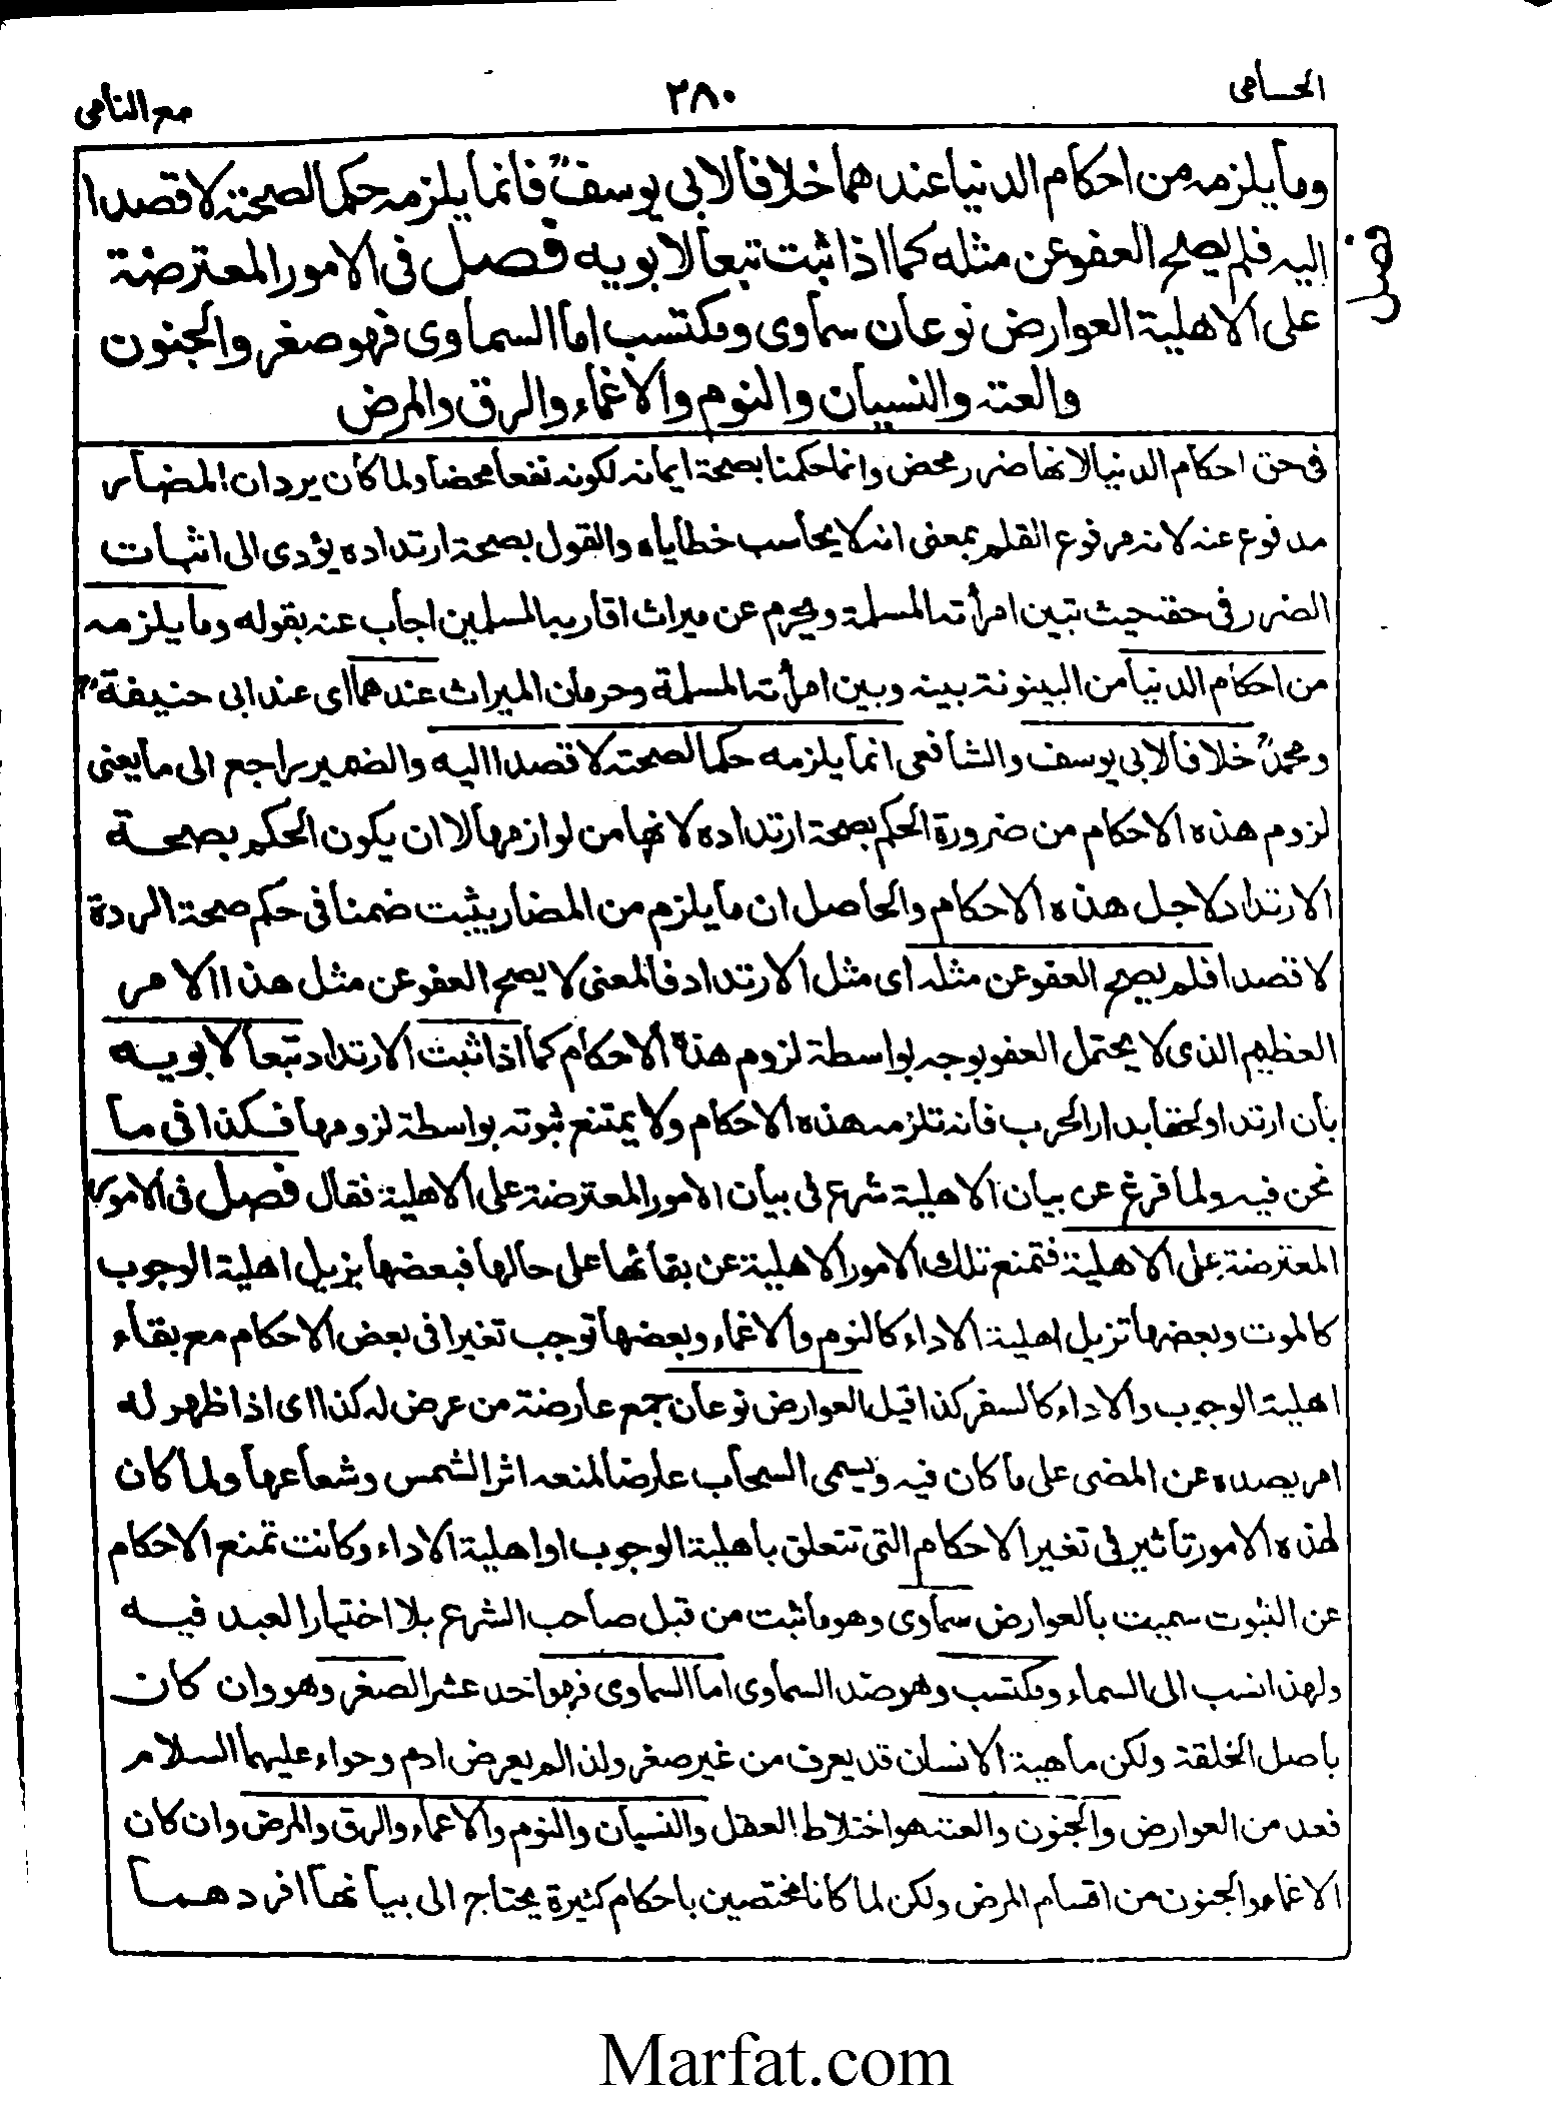 الحسامى
٢٨٠
مع النامى
وما يلزمه من احكام الدنيا عندهما خلافا لابى يوسفؒ فانما يلزمه حكما لصحته لا قصدا
اليه فلم يصلح العفو عن مثله كما اذا ثبت تبعا لابويه فصل فى الامور المعترضة
فصل
على الاهلية العوارض نوعان سماوى ومكتسب اما السماوى فهو صغر والجنون
والعته والنسيان والنوم والاغماء والرق والمرض
فى حق احكام الدنيا لانها ضرر محض وانما حكمنا بصحة ايمانه لكونه نفعا محضا ولما كان يرد ان المضار
مدفوع عنه لانه مرفوع القلم بمعنى انه لا يحاسب خطاياه والقول بصحة ارتداده يؤدى الى اثبات
الضرر فى حقه حيث تبين امرأته المسلمة ويحرم عن ميراث اقاربه المسلمين اجاب عنه بقوله وما يلزمه
من احكام الدنيا من البينونة بينه وبين امرأته المسلمة وحرمان الميراث عندهما اى عند ابى حنيفةؒ
ومحمدؒ خلافا لابى يوسف والشافعى انما يلزمه حكما لصحته لا قصدا اليه والضمير راجع الى ما يعنى
لزوم هذه الاحكام من ضرورة الحكم بصحة ارتداده لانها من لوازمها لا ان يكون الحكم بصحة
الارتداد لاجل هذه الاحكام والحاصل ان ما يلزم من المضار يثبت ضمنا فى حكم صحة الردة
لا قصدا فلم يصح العفو عن مثله اى مثل الارتداد فالمعنى لا يصح العفو عن مثل هذا الامر
العظيم الذى لا يحتمل العفو بوجه بواسطة لزوم هذه الاحكام كما اذا ثبت الارتداد تبعا لابويه
بأن ارتدا ولحقا بدار الحرب فانه تلزمه هذه الاحكام ولا يمتنع ثبوته بواسطة لزومها فكذا فى ما
نحن فيه ولما فرغ عن بيان الاهلية شرع فى بيان الامور المعترضة على الاهلية فقال فصل فى الامور
المعترضة على الاهلية فتمنع تلك الامور الاهلية عن بقائها على حالها فبعضها يزيل اهلية الوجوب
كالموت وبعضها تزيل اهلية الاداء كالنوم والاغماء وبعضها توجب تغيرا فى بعض الاحكام مع بقاء
اهلية الوجوب والاداء كالسفر كذا قيل العوارض نوعان جمع عارضة من عرض له كذا اى اذا ظهر له
امر يصده عن المضى على ما كان فيه ويسمى السحاب عارضا لمنعه اثر الشمس وشعاعها ولما كان
لهذه الامور تأثير فى تغير الاحكام التى تتعلق باهلية الوجوب او اهلية الاداء وكانت تمنع الاحكام
عن الثبوت سميت بالعوارض سماوى وهو ما ثبت من قبل صاحب الشرع بلا اختيار العبد فيه
ولهذا نسب الى السماء ومكتسب وهو ضد السماوى اما السماوى فهو احد عشر الصغر وهو وان كان
باصل الخلقة ولكن ماهية الانسان قد يعرف من غير صغر ولذا لم يعرض ادم وحواء عليهما السلام
فعد من العوارض والجنون والعته هو اختلاط العقل والنسيان والنوم والاغماء والرق والمرض وان كان
الاغماء والجنون من اقسام المرض ولكن لما كانا مختصين باحكام كثيرة يحتاج الى بيانها افردهما
Marfat.com